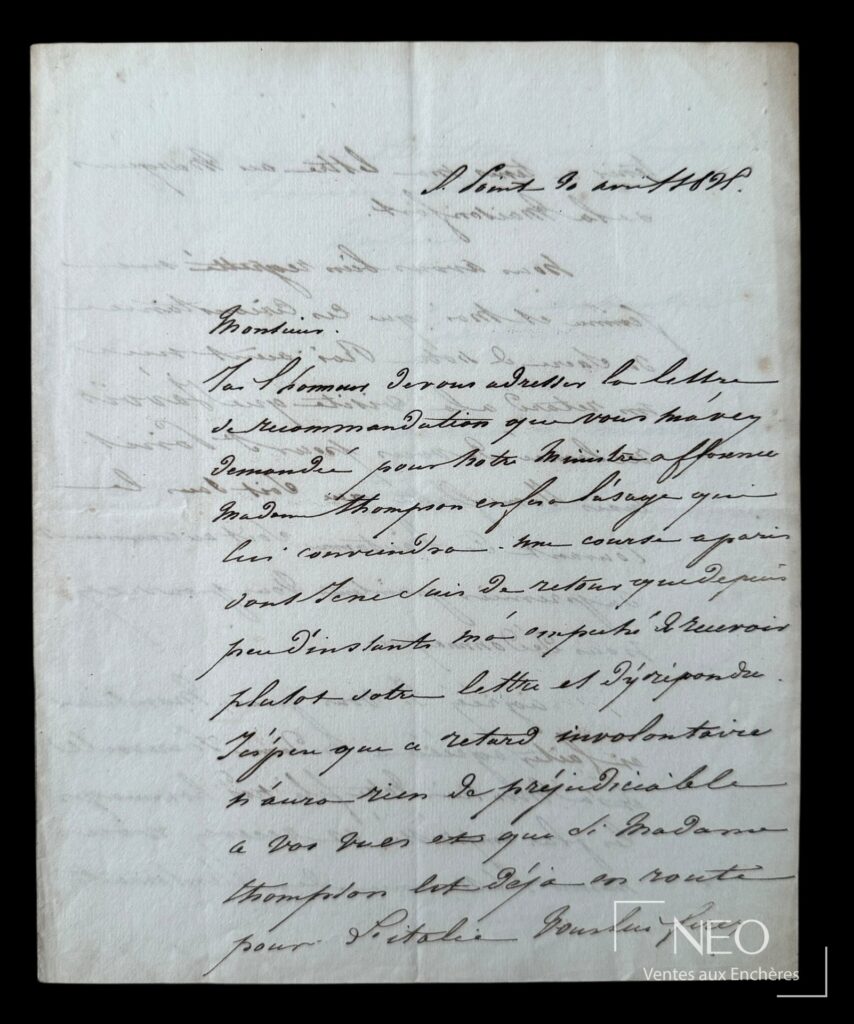 St Point 30 avril
Monsieur.
J'ai l'honneur de vous adresser la lettre
de recommandation que vous m'avez
demandée pour notre Ministre a fflorence
Madame thompson en fera l'usage qui
lui conviendra. une course a paris
dont Je ne suis de retour que depuis
peu d'instants m'a empeché de recevoir
plutot votre lettre et d'y répondre.
J'espere que ce retard involontaire
n'aura rien de préjudiciable
a vos vues et que si Madame
thompson est déja en route
pour l'italie Vous lui ferez
NEO
Ventes aux Enchères